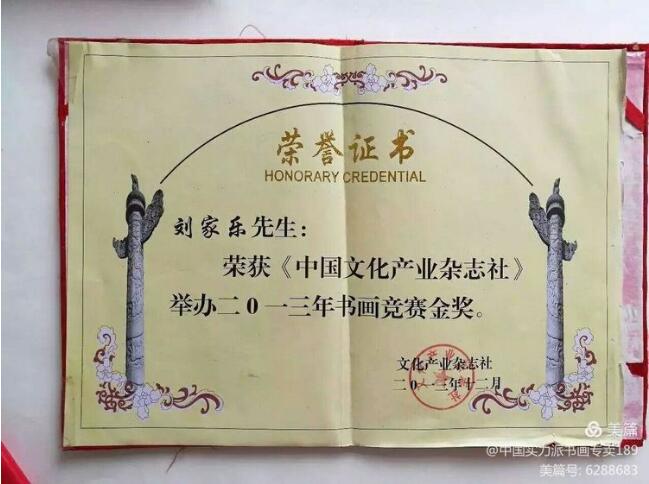 荣誉证书
HONORARY CREDENTIAL
刘家乐先生：
荣获《中国文化产业杂志社》
举办二0一三年书画竞赛金奖。
文化产业杂志社
二0一三年十二月
美篇
@中国实力派书画专卖189
美篇号: 6288683